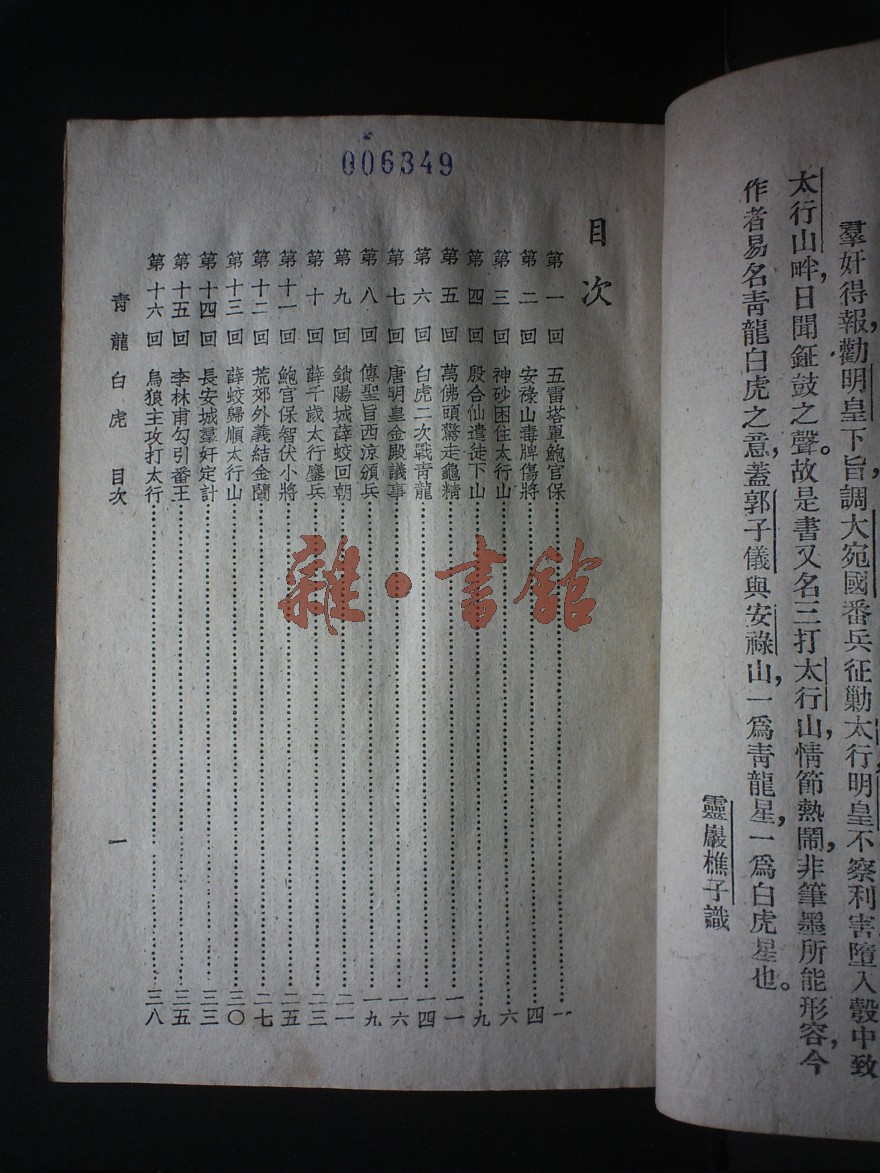 羣奸得報，勸明皇下旨，調大宛國番兵征勦太行。明皇不察利害，墮入彀中，致
太行山畔，日聞鉦鼓之聲。故是書又名三打太行山，情節熱鬧，非筆墨所能形容，今
作者易名青龍白虎之意，蓋郭子儀與安祿山，一爲青龍星，一爲白虎星也。
靈巖樵子識
006349
目次
第一回 五雷塔罩鮑官保 一
第二回 安祿山毒牌傷將 四
第三回 神砂困住太行山 六
第四回 殷合仙遣徒下山 九
第五回 萬佛頭驚走龜精 一一
第六回 白虎二次戰青龍 一四
第七回 唐明皇金殿議事 一六
第八回 傳聖旨西涼頒兵 一九
第九回 鎖陽城薛蛟回朝 二一
第十回 薛千歲太行鏖兵 二三
第十一回 鮑官保智伏小將 二五
第十二回 荒郊外義結金蘭 二七
第十三回 薛蛟歸順太行山 三〇
第十四回 長安城羣奸定計 三三
第十五回 李林甫勾引番王 三五
第十六回 烏狼主攻打太行 三八
青龍白虎 目次
一
雜·書館